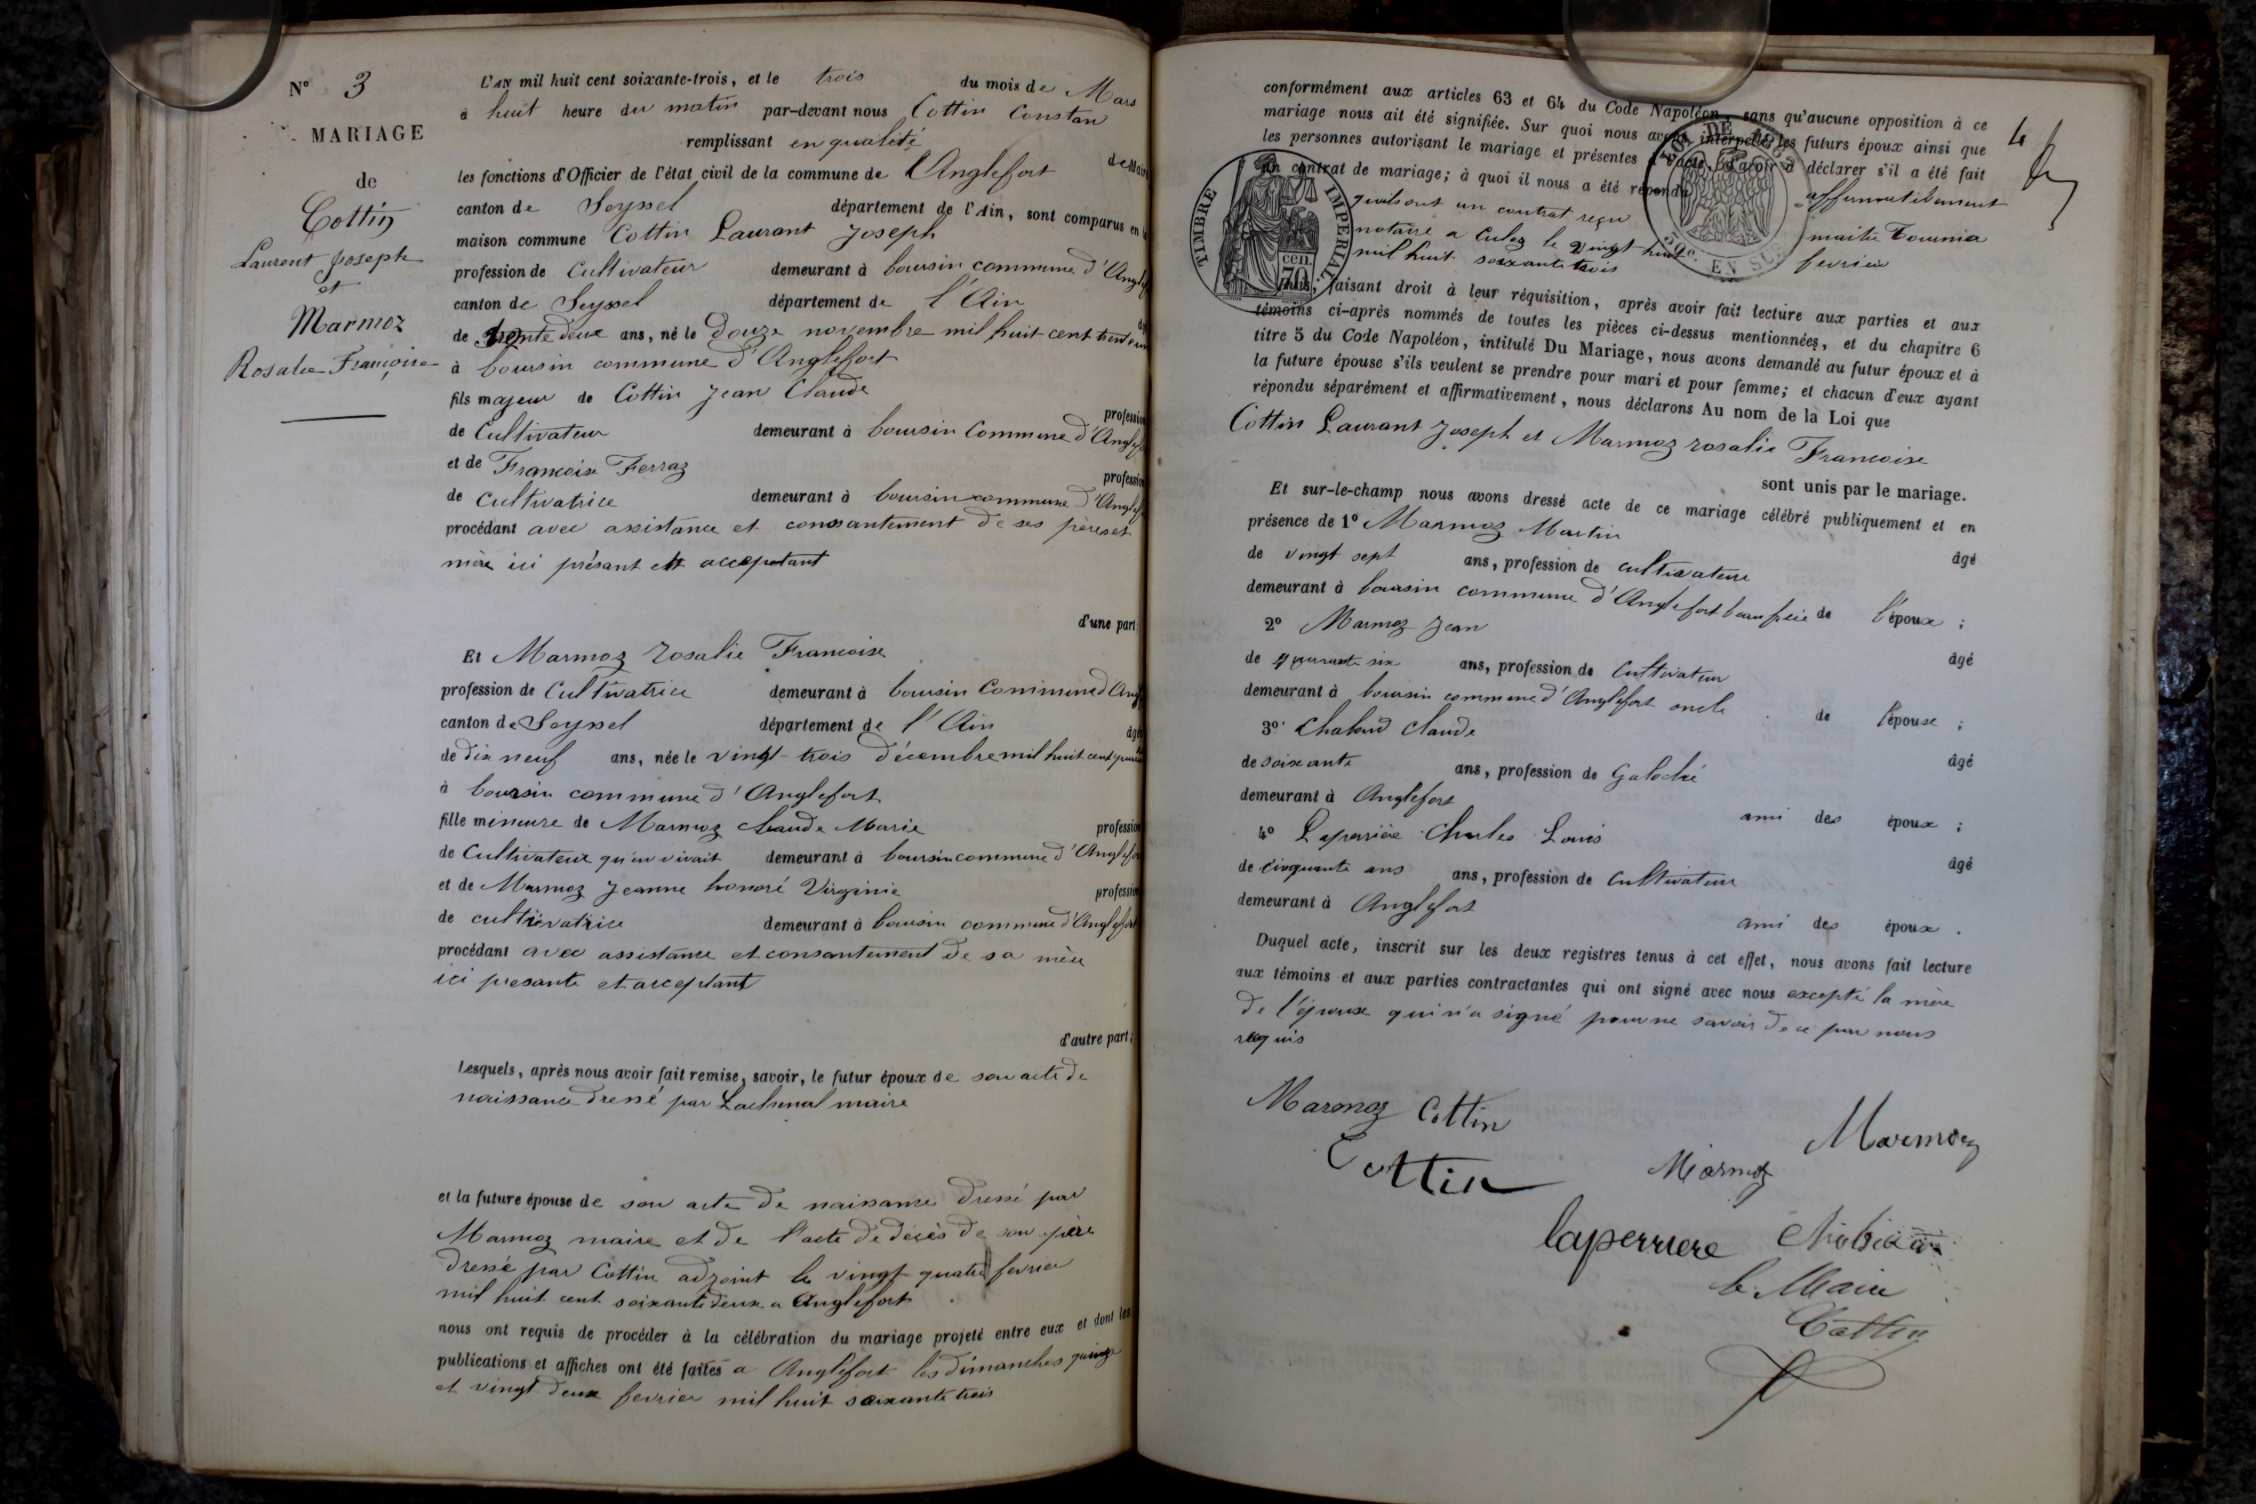 N° 3
MARIAGE
de
Cottin
Laurent Joseph
et
Marmoz
Rosalie Françoise
L'AN mil huit cent soixante-trois, et le trois du mois de Mars
à huit heure du matin par-devant nous Cottin Constan
remplissant en qualité de Maire
les fonctions d'Officier de l'état civil de la commune de l'Anglefort
canton de Seyssel département de l'Ain, sont comparus en la
maison commune Cottin Laurant Joseph
profession de Cultivateur demeurant à boursin commune d'Anglef
canton de Seyssel département de l'Ain
de trente deux ans, né le Douze novembre mil huit cent
à boursin commune d'Anglefort
fils majeur de Cottin Jean Claude
profession
de Cultivateur demeurant à boursin Commune d'Anglef
et de Francoise Ferraz
profession
de Cultivatrice demeurant à boursin commune d'Anglef
procédant avec assistance et consantement de ses père et
mère ici présant et acceptant
d'une part
Et Marmoz rosalie Francoise
profession de Cultivatrice demeurant à boursin Commune d'Ang
canton de Seyssel département de l'Ain
âgé
de dix neuf ans, née le vingt-trois décembre mil huit cent
à boursin commune d'Anglefort
fille mineure de Marmoz Claude Marie profession
de Cultivateur qu'en vivait demeurant à boursin commune d'Anglefor
et de Marmoz Jeanne honoré Virginie profession
de cultivatrice demeurant à boursin commune d'Anglefort
procédant avec assistance et consantement de sa mère
ici presante et acceptant
d'autre part;
Lesquels, après nous avoir fait remise, savoir, le futur époux de son acte de
naissance dressé par Lachenal maire
et la future épouse de son acte de naissance dressé par
Marmoz maire et de l'acte de décès de son père
dressé par Cottin adjoint le vingt quatre fevrier
mil huit cent soixante deux a Anglefort
nous ont requis de procéder à la célébration du mariage projeté entre eux et dont les
publications et affiches ont été faites a Anglefort les dimanches quinze
et vingt deux fevrier mil huit soixante trois
4
conformément aux articles 63 et 64 du Code Napoléon, sans qu'aucune opposition à ce
mariage nous ait été signifiée. Sur quoi nous avons interpellé les futurs époux ainsi que
les personnes autorisant le mariage et présentes à l'acte, d'avoir à déclarer s'il a été fait
un contrat de mariage; à quoi il nous a été répondu affirmativement
qu'ils ont un contrat reçu maitre Tournia
notaire a Culoz le vingt huit fevrier
mil huit soixante trois
TIMBRE IMPERIAL
50c.
EN SUS
Nous, faisant droit à leur réquisition, après avoir fait lecture aux parties et aux
témoins ci-après nommés de toutes les pièces ci-dessus mentionnées, et du chapitre 6
titre 5 du Code Napoléon, intitulé Du Mariage, nous avons demandé au futur époux et à
la future épouse s'ils veulent se prendre pour mari et pour femme; et chacun d'eux ayant
répondu séparément et affirmativement, nous déclarons Au nom de la Loi que
Cottin Laurant Joseph et Marmoz rosalie Francoise
sont unis par le mariage.
Et sur-le-champ nous avons dressé acte de ce mariage célébré publiquement et en
présence de 1° Marmoz Martin
âgé
de vingt sept ans, profession de cultivateur
demeurant à boursin commune d'Anglefort beau frère de l'époux;
2° Marmoz Jean
âgé
de quarante six ans, profession de Cultivateur
demeurant à boursin commune d'Anglefort oncle de l'épouse;
3° Chaboud Claude
âgé
de soixante ans, profession de Galoché
demeurant à Anglefort
ami des époux;
4° Laperrière Charles Louis
âgé
de cinquante ans ans, profession de Cultivateur
demeurant à Anglefort
ami des époux.
Duquel acte, inscrit sur les deux registres tenus à cet effet, nous avons fait lecture
aux témoins et aux parties contractantes qui ont signé avec nous excepté la mère
de l'épouse qui n'a signé pour ne savoir de ce par nous
requis
Marmoz Cottin
Marmoz
Cottin
Marmoz
laperriere
le Maire
Cottin